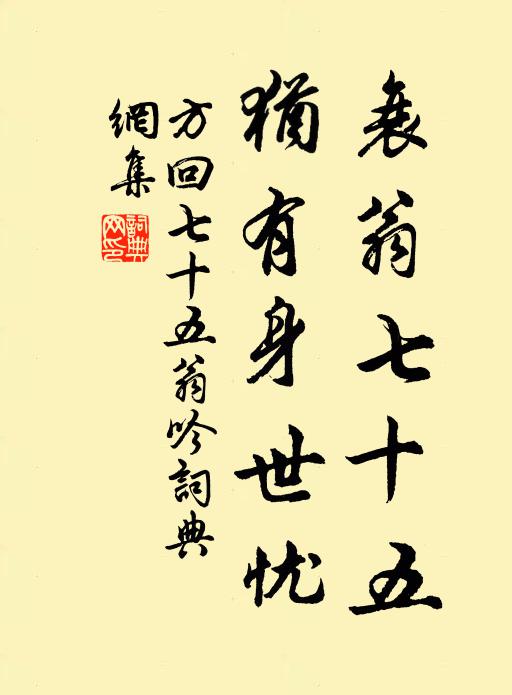 衰翁七十五
猶有身世忧
方回七十五翁吟詞典
網集
詞典網印